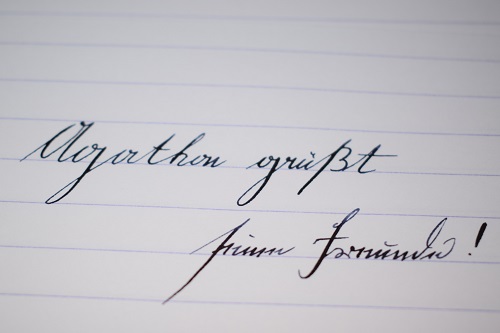 Agathon grüßt
seine Freunde!